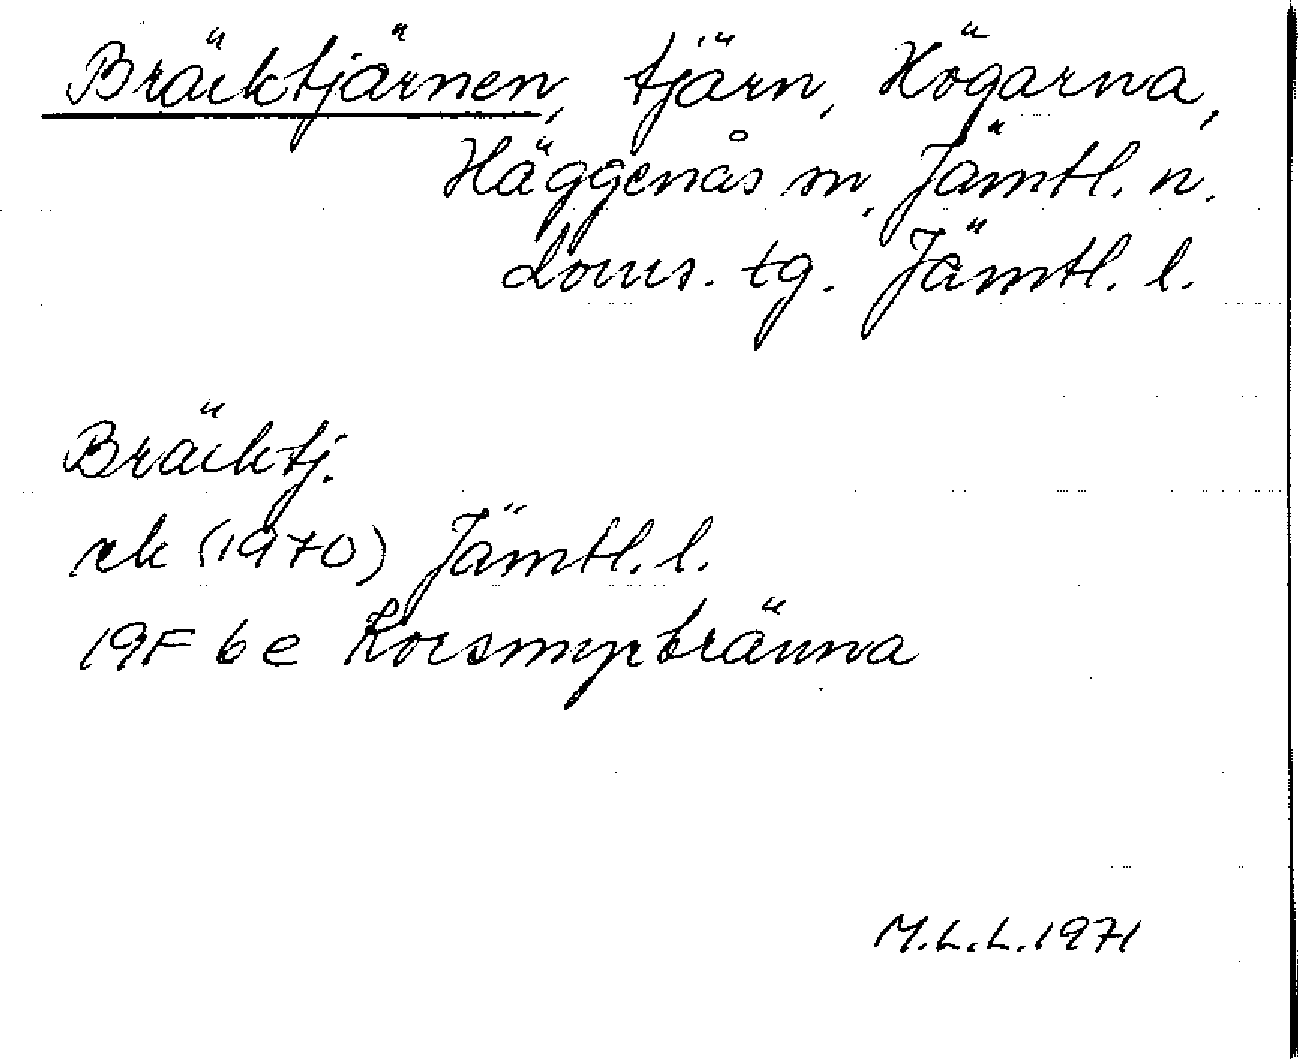 Bräcktjärnen, tjärn, Högarna,
Häggenås sn, Jämtl. n.
doms. tg. Jämtl. l.
Bräcktj.
rek (1970) Jämtl. l.
19F 6e Korsmyrbränna
M.L.L. 1971